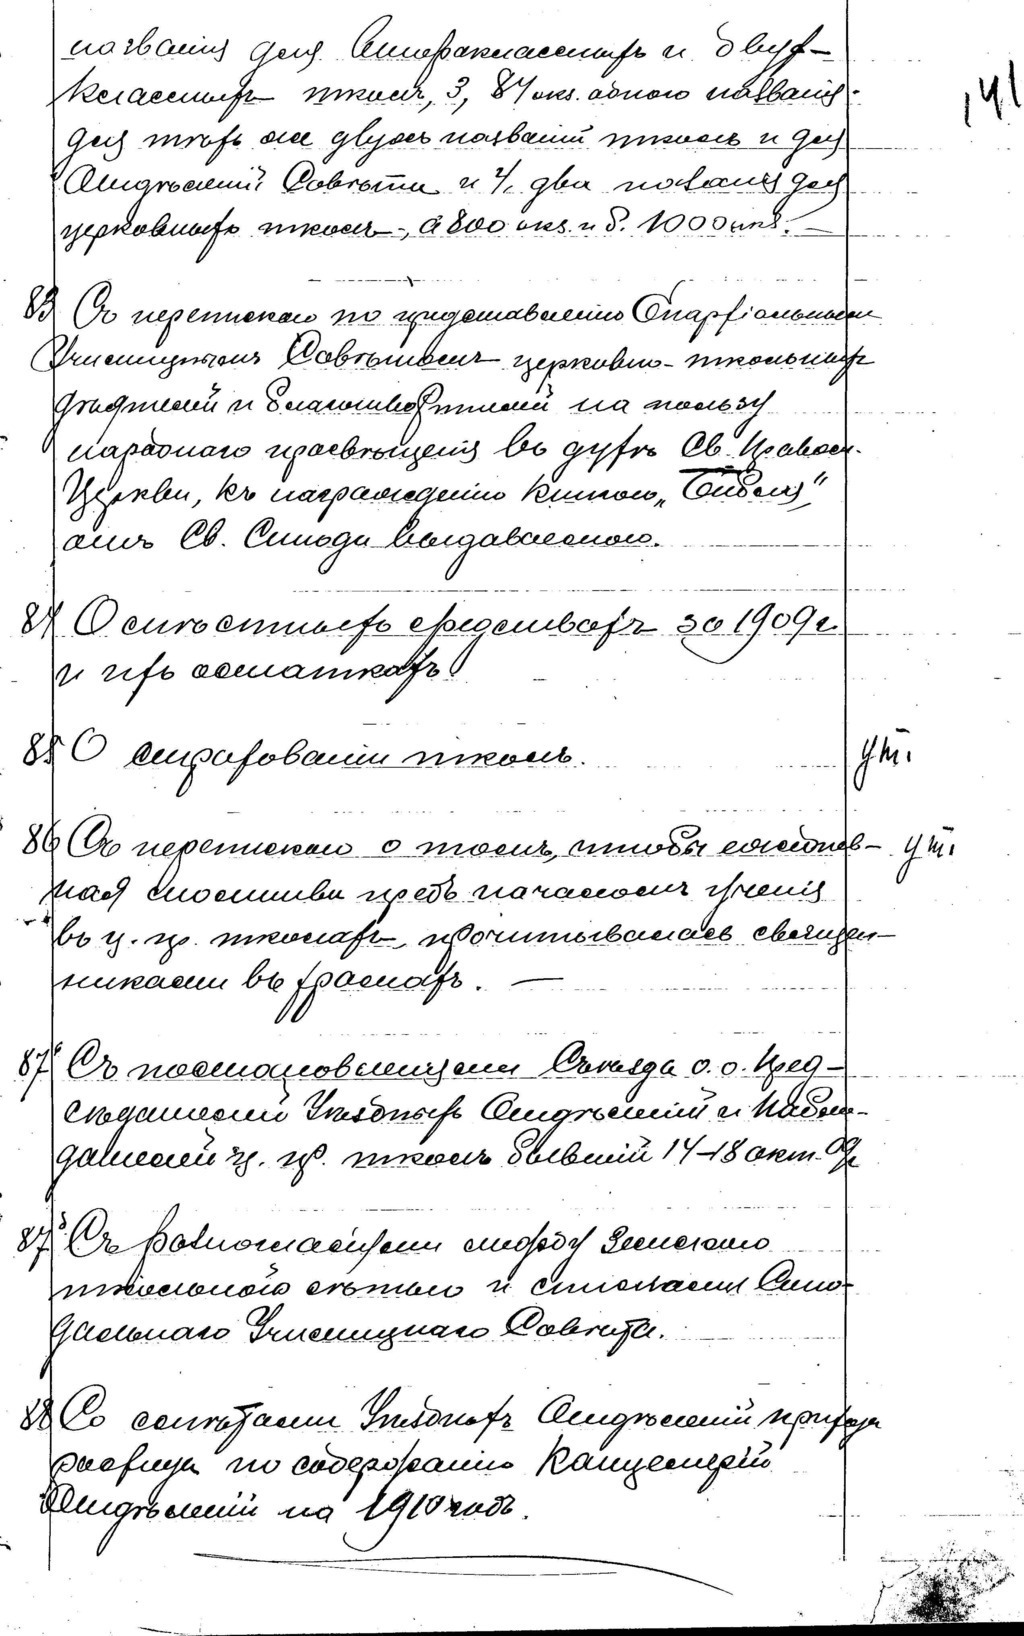 названія для второклассныхъ и двух-
классныхъ школъ, 3, 84 экз. одного названія
для тѣхъ же двухъ названій школъ и для
Отдѣленій Совѣта и 4, два названія для
церковныхъ школъ, а 800 экз. и б. 1000 экз.
141
83 Съ перепискою по представленію Епархіальнымъ
Училищнымъ Совѣтомъ церковно-школьныхъ
дѣятелей и благотворителей на пользу
народнаго просвѣщенія въ духѣ Св. Правосл.
Церкви, къ награжденію книгою „Библія"
отъ Св. Синода выдаваемою.
84 О смѣстныхъ средствахъ за 1909 г.
и ихъ остаткахъ
85 О страхованіи школъ.
ут.
86 Съ перепискою о томъ, чтобы ежеднев-
ут.
ная молитва предъ началомъ ученія
въ ц. пр. школахъ, прочитывалась священ-
никами въ храмахъ.
87 Съ постановленіями Съѣзда о. о. Пред-
сѣдателей Уѣздныхъ Отдѣленій и Наблю-
дателей ц. пр. школъ бывшій 14-18 окт. 09 г.
87 Съ разногласіями между Земскою
школьною сѣтью и списками Сино-
дальнаго Училищнаго Совѣта.
88 Со смѣтами Уѣздныхъ Отдѣленій прихода
расхода по содержанію Канцелярій
Отдѣленій на 1910 годъ.